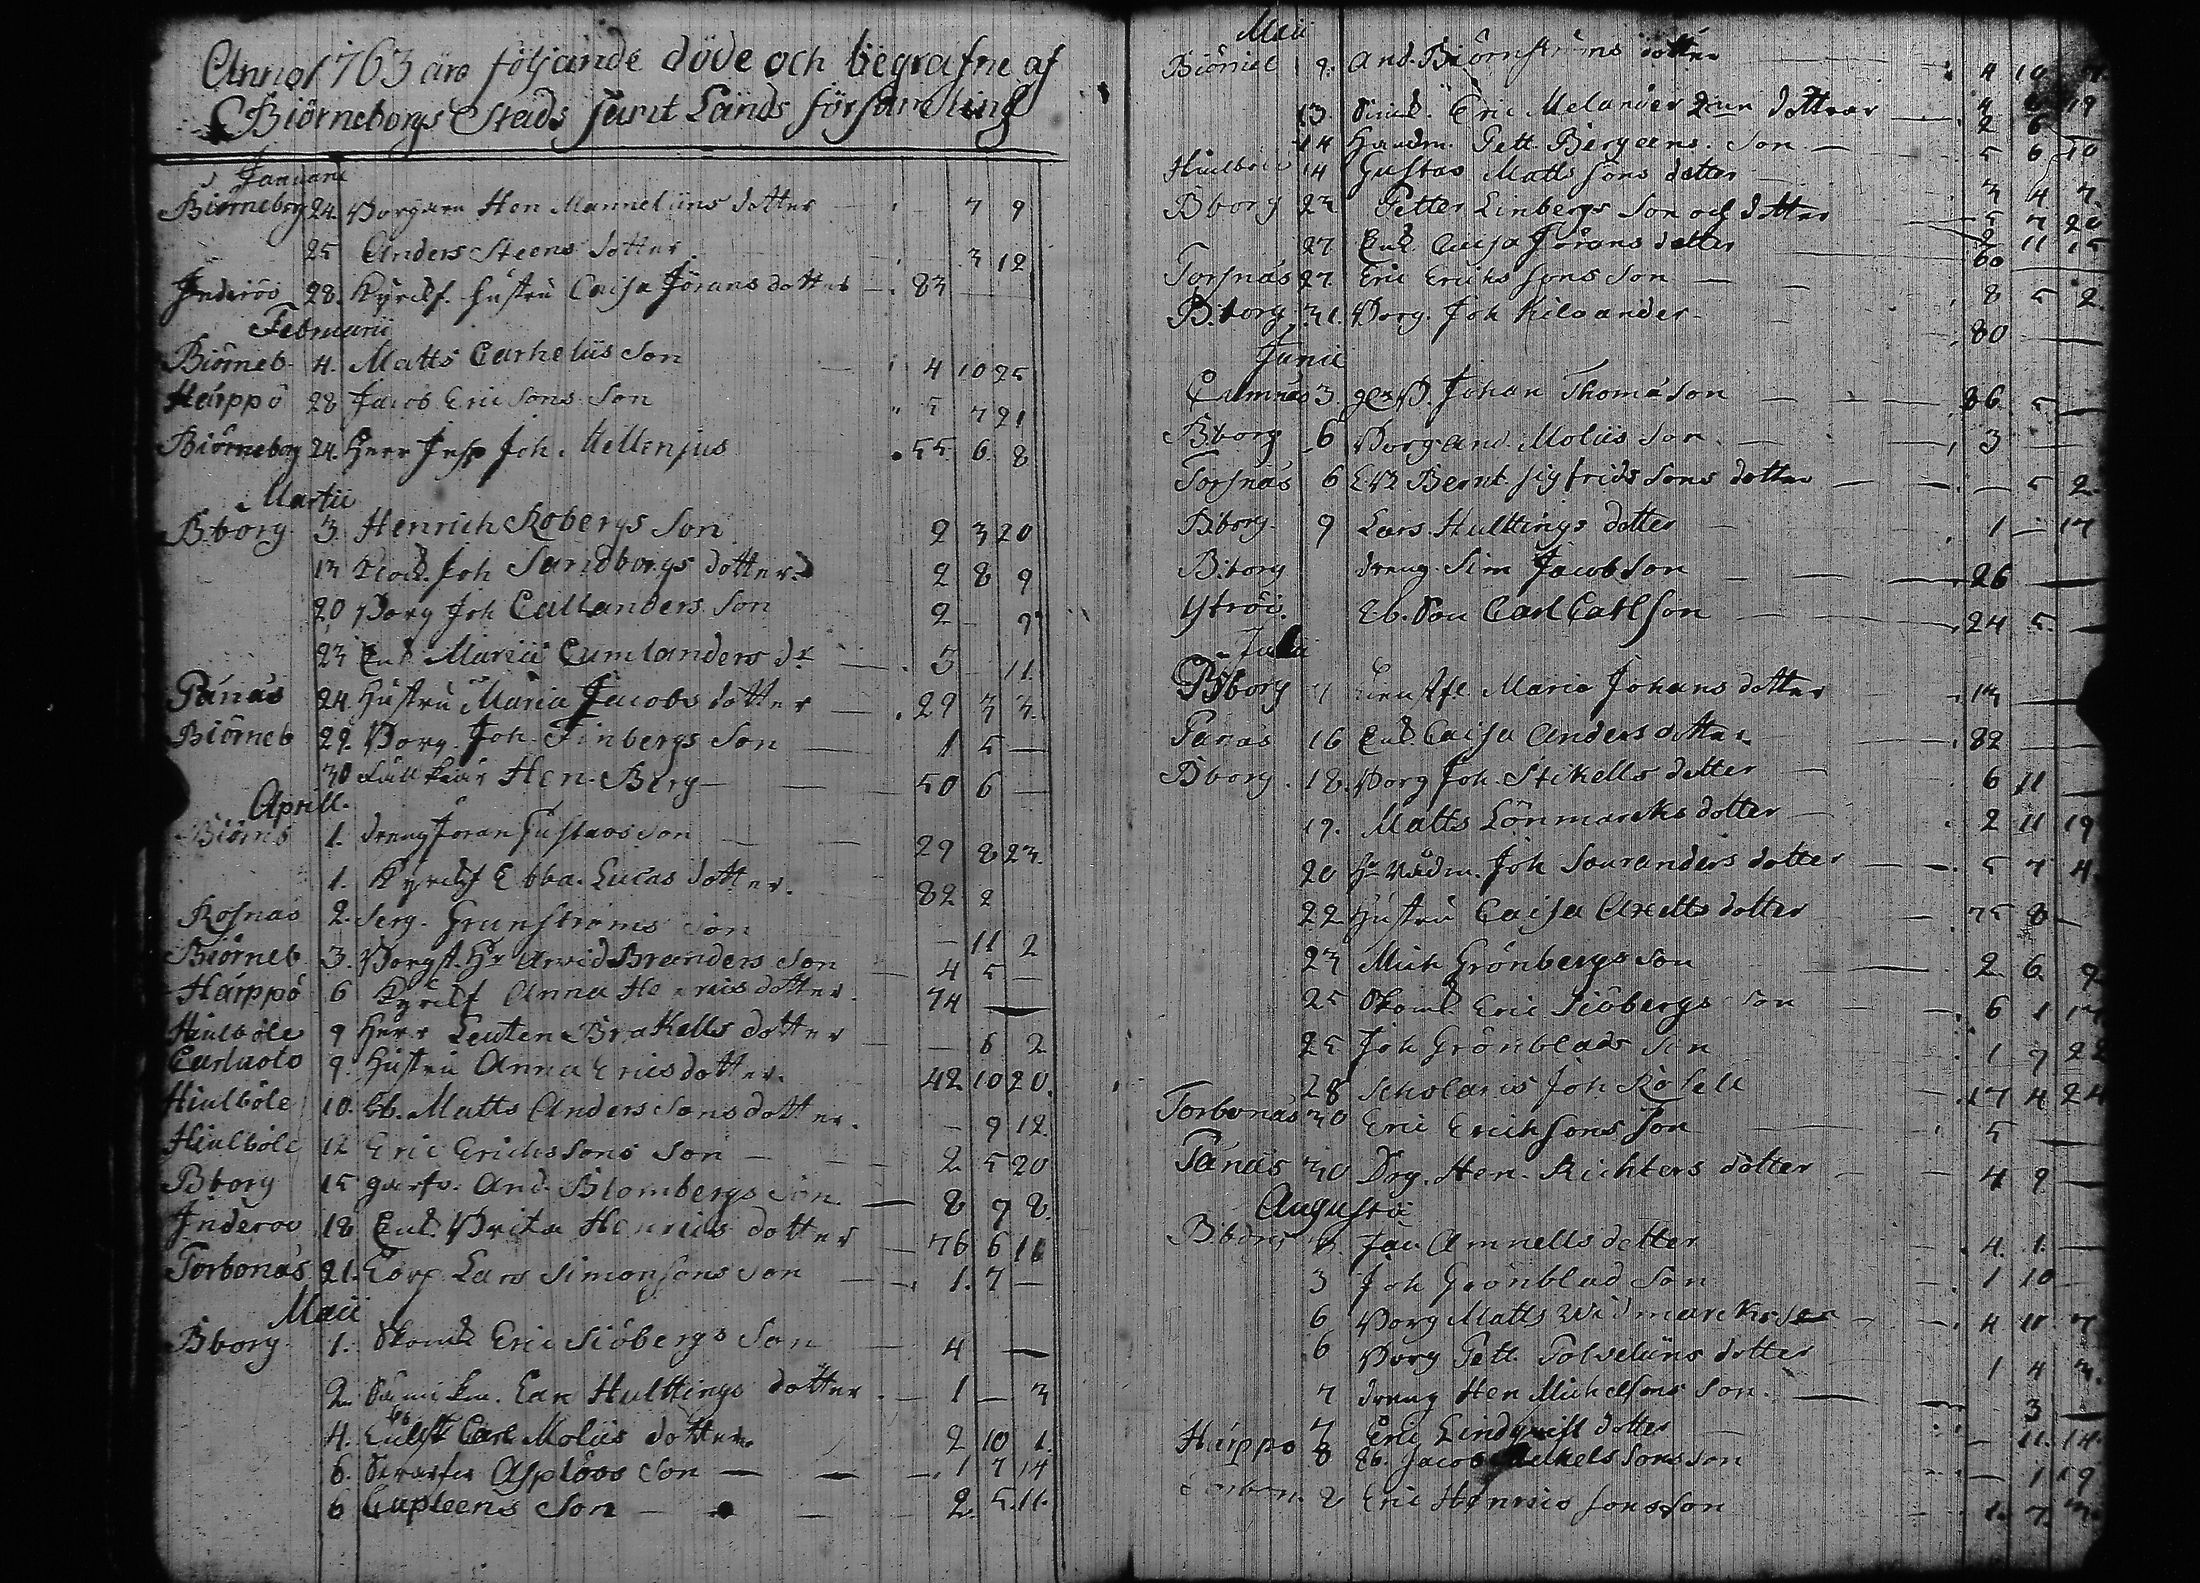 Anno 1763 äro följande döde och begrafne af
Biörneborgs Stads samt Lands församling
Januarii
Biörneborg 24. Borgaren Hen Mannelius dotter 7 9
25 Anders Steens dotter 3 12
Inderöö 28. Kyrckf. hustru Caisa Jörans dotter 83
Februarii
Biörneb. 4. Matts Carhelius Son 4 10 25
Härppö 28 Jacob Ericsons Son 5 7 21
Biörneborg 24. Herr Insp Joh. Hellenius 55 6 8
Martii
Bborg 3. Henrich Robergs Son 2 3 20
13 Joh Sandborgs dotter 2 8 9
20 Borg Joh Callanders Son 2 9
23 Enk. Maria Cumlanders dr 3 11
Panäs 24. Hustru Maria Jacobs dotter 29 3 3
Biörneb 29. Borg. Joh. Finbergs Son 1 5
30 Hen. Berg 50 6
Aprill.
Biörnb 1. dreng Jöran Gustavsson 29 8 23.
1. Ebba Lucas dotter. 82 2
Rosnäs 2. Serg. Grunströms Son 11 2
Biörneb. 3. Borgst. Hr Arvid Branders Son 4 5
Härppö 6 Anna Henrics dotter 74
Hiulböle 9 Herr Leuten Brakells dotter 6 2
Carluoto 9. Hustru Anna Erics dotter. 42 10 20.
Hiulböle 10. Bb. Matts Anders Sons dotter. 9 12.
Hiulböle 12 Eric Erichssons Son 2 5 20
Bborg 15 garfv. And. Blombergs Son 8 7 8.
Inderöö 18 Enk. Brita Henrics dotter 76 6 16
Torbonäs 21. Corp. Lars Simonsons Son 1. 7
Maii
Bborg 1. Skom. Eric Siöbergs Son 4
2. Hulttings dotter 1 3
4. Carl Molius dotter 2 10 1.
6. Asplöös Son 1 7 14
6 Cupleens Son 2. 5. 11.
Maii
Biörneb 9. And. Biörnströms dotter 4 10
13. Smed. Eric Melander 2:ne döttrar 4 19
2 6
14 Handm. Pett. Bergeens. Son 5 6 10
Hiulböle 14 Gustav Matts Sons dotter 3 4 7.
Bborg 23 Petter Linbergs Son och dotter 5 7 20
2 11 15
27 Enk. Caisa Jörans dotter 60
Torsnäs 27. Eric Erichs sons Son 8 5 2.
B.borg 31. Borg. Joh Kiloander 80
Junii
Cumnäs 3. Johan Thomason 86 5
Bborg 6 Borg And. Molius Son 3
Torsnäs 6 Bernt Sigfrids Sons dotter 5 2.
Bborg 9 Lars Hulttings dotter 1 17
B:borg dreng. Sim Jacobson 26
Yströi. Bb. Son Carl Carlson 24 5.
Julii
Bborg Maria Johans dotter 13
Panäs 16 Enk. Caisa Anders dotter 82
Bborg 18. Borg Joh. Stikells dotter 6 11
19. Matts Lönmarcks dotter 2 11 19
20 Hr Rådm. Joh Sauranders dotter 5 7 4.
22 Hustru Caisa Axells dotter 75 8
23 Mich Grönbergs Son 2 6 9
25 Skom. Eric Siöbergs Son 6 1 17
25 Joh Grönblads Son 1 9 22
28 Scholaris Joh. Rosell 17 4 24
Torbonäs 30 Eric Erichsons Son 5
Panäs 30 Drg. Hen. Richters dotter 4 9
Augusti
B:borg Jac. Amnells dotter 4. 1.
3 Joh Grönblad Son 1 10
6 Borg Matts Widmarcks Son 4 11 7
6 Borg Pett. Tolvelius dotter 1 4 3.
7 dreng Hen Michelsons Son. 3
7 Eric Lindqvist dotter 11. 14.
Härppö 8 Bb. Jacob Michels Sons Son 1 19
8 Eric Henrics Sons Son 1. 7.